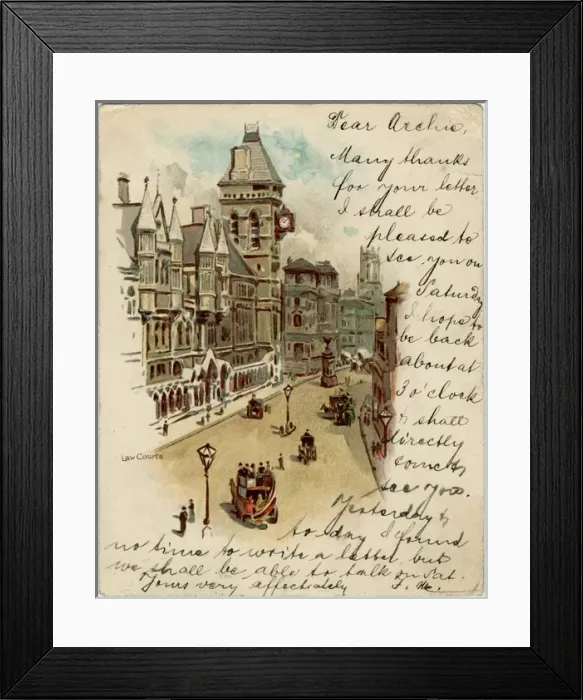 Dear Archie,
Many thanks
for your letter
I shall be
pleased to
see you on
Saturday
I hope to
be back
about at
3 o'clock
& shall
directly
come &
see you.
Yesterday &
to day I found
no time to write a letter but
we shall be able to talk on Sat.
Yours very affectately
Law Courts